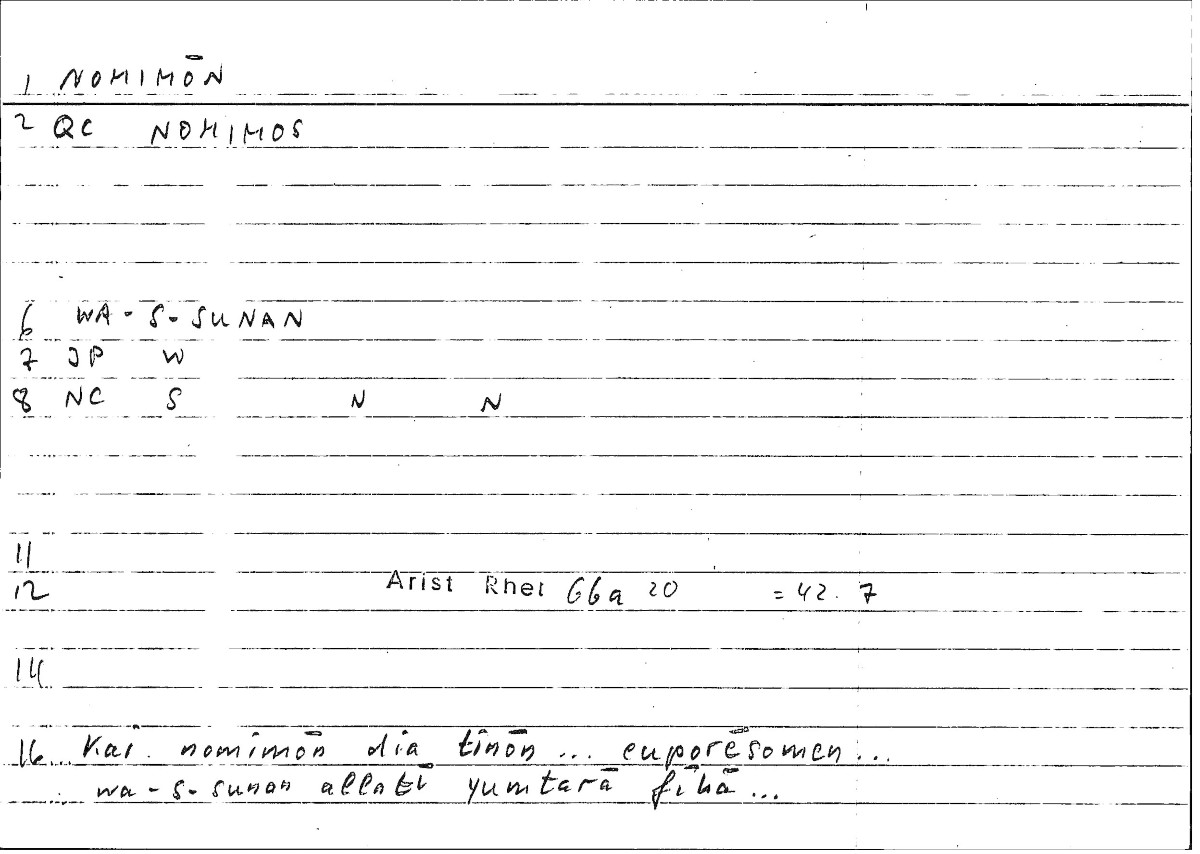 1 NOMIMŌN
2 QC NOMIMOS
6 WA-S-SUNAN
7 JP W
8 NC S N N
11
12 Arist Rhet 66a 20 = 42.7
14
16 Kai nomimōn dia tinōn ... euporēsomen ...
wa-s-sunan allatī yumtarā fīhā ...